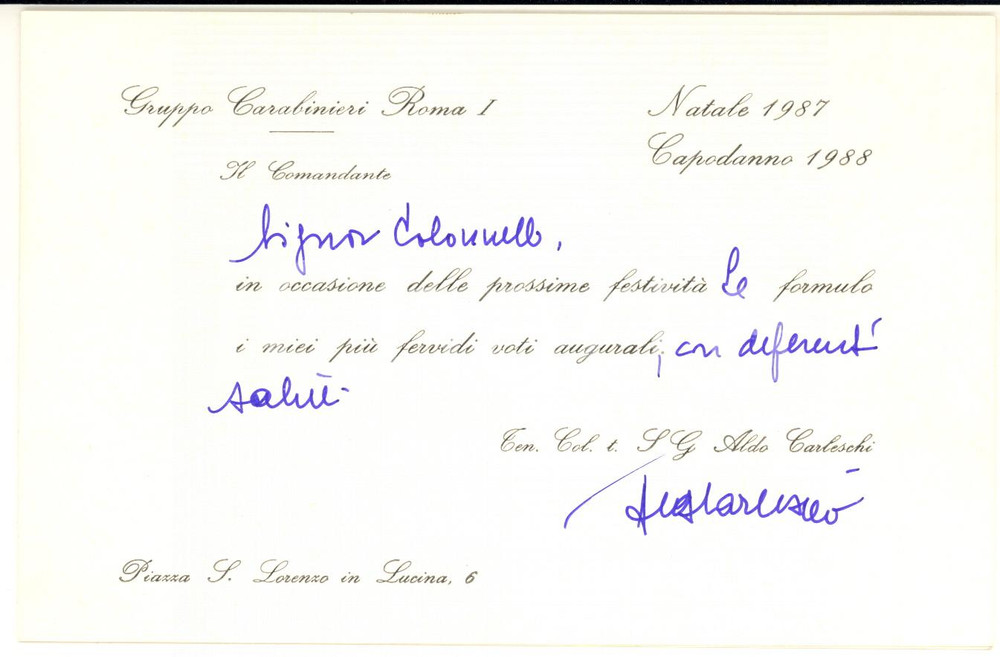 Gruppo Carabinieri Roma I
Natale 1987
Capodanno 1988
Il Comandante
Signor Colonnello,
in occasione delle prossime festività Le formulo
i miei più fervidi voti augurali, con deferenti
saluti.
Ten. Col. t. S G Aldo Carleschi
Piazza S. Lorenzo in Lucina, 6